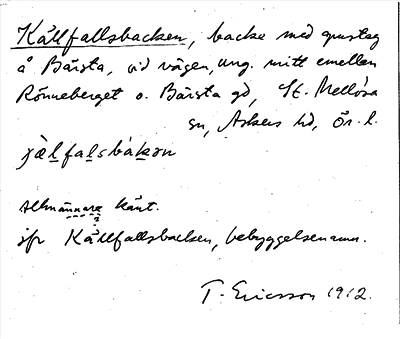 Källfallsbacken, backe med grustag
å Bärsta, vid vägen, ung. mitt emellan
Rönneberget o. Bärsta gd, St. Mellösa
sn, Askers hd, Ör. l.
jä̀lfalsbákən
Allmännare känt.
?
jfr Källfallsbacken, bebyggelsenamn.
T. Ericsson 1912.